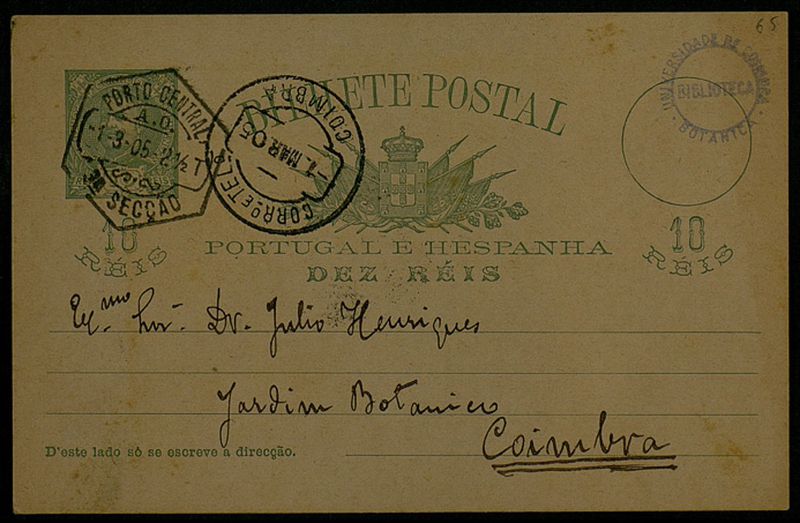 65
BILHETE POSTAL
PORTO CENTRAL
A.O.
-1-3-05-2½T
3ª SECÇÃO
COIMBRA
-1 MAR 05
CORRº E TELº
UNIVERSIDADE DE COIMBRA
BIBLIOTECA
BOTANICA
10
RÉIS
10
RÉIS
PORTUGAL E HESPANHA
DEZ RÉIS
Exmo Snr. Dr. Julio Henriques
Jardim Botanico
Coimbra
D'este lado só se escreve a direcção.